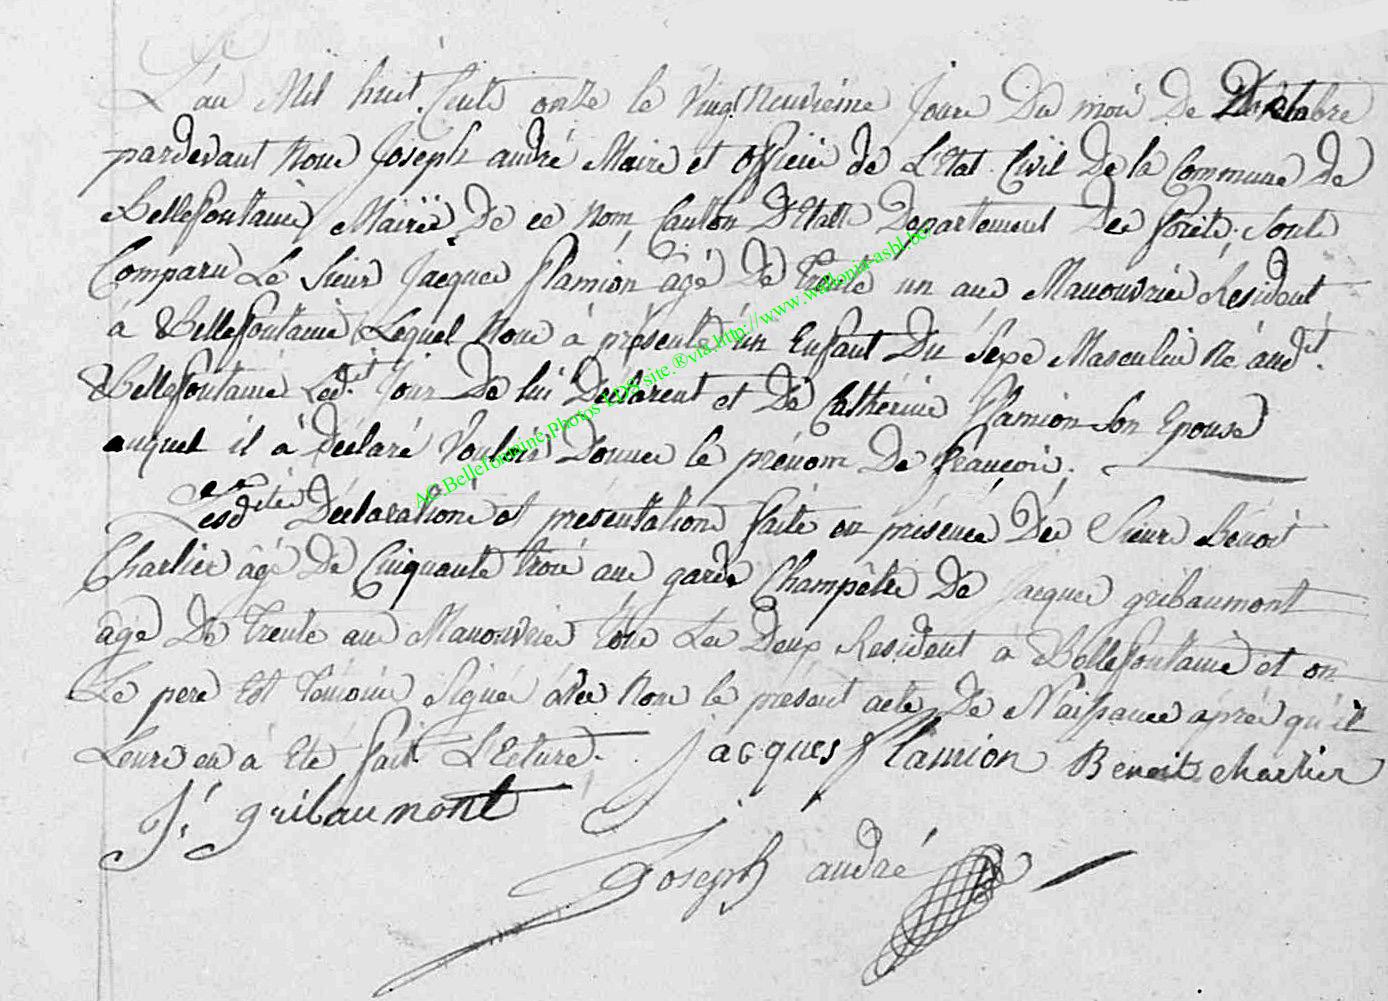 L'an Mil huit Cents onze le Vingt neuvieme Jour du mois de Octobre
pardevant Nous Joseph andré Maire et officier de L'Etat Civil De la Commune de
Bellefontaine Mairie De ce Nom Canton D'Etalle Departement Des forêts. Sont
Comparu Le Sieur Jacques Flamion agé De trente un ans Manouvrié Résident
à Bellefontaine Lequel Nous à présenté un Enfant Du Sexe Masculin Né aud.it
Bellefontaine Led.it Jour De lui Déclarent et De Cathérine Flamion Son Epouse
auquel il à Déclaré Vouloir Donner le prénom De françois.
Lesdites Déclaration et présentation faite en présence Des Sieurs Bénoit
Charlier âgé De Cinquante trois ans garde Champêtre De Jacques gribaumont
âgé De trente ans Manouvrié tous Les Deux Résident à Bellefontaine et on
Le pere Est temoins Signés avec Nous le présent acte De Naissance après qu'il
Leurs en à Eté fait L'Ecture. Jacques Flamion Benoit charlier
J: gribaumont
Joseph andré
AC.Bellefontaine.Photos LDS site.®via.http://www.wallonia-asbl.be